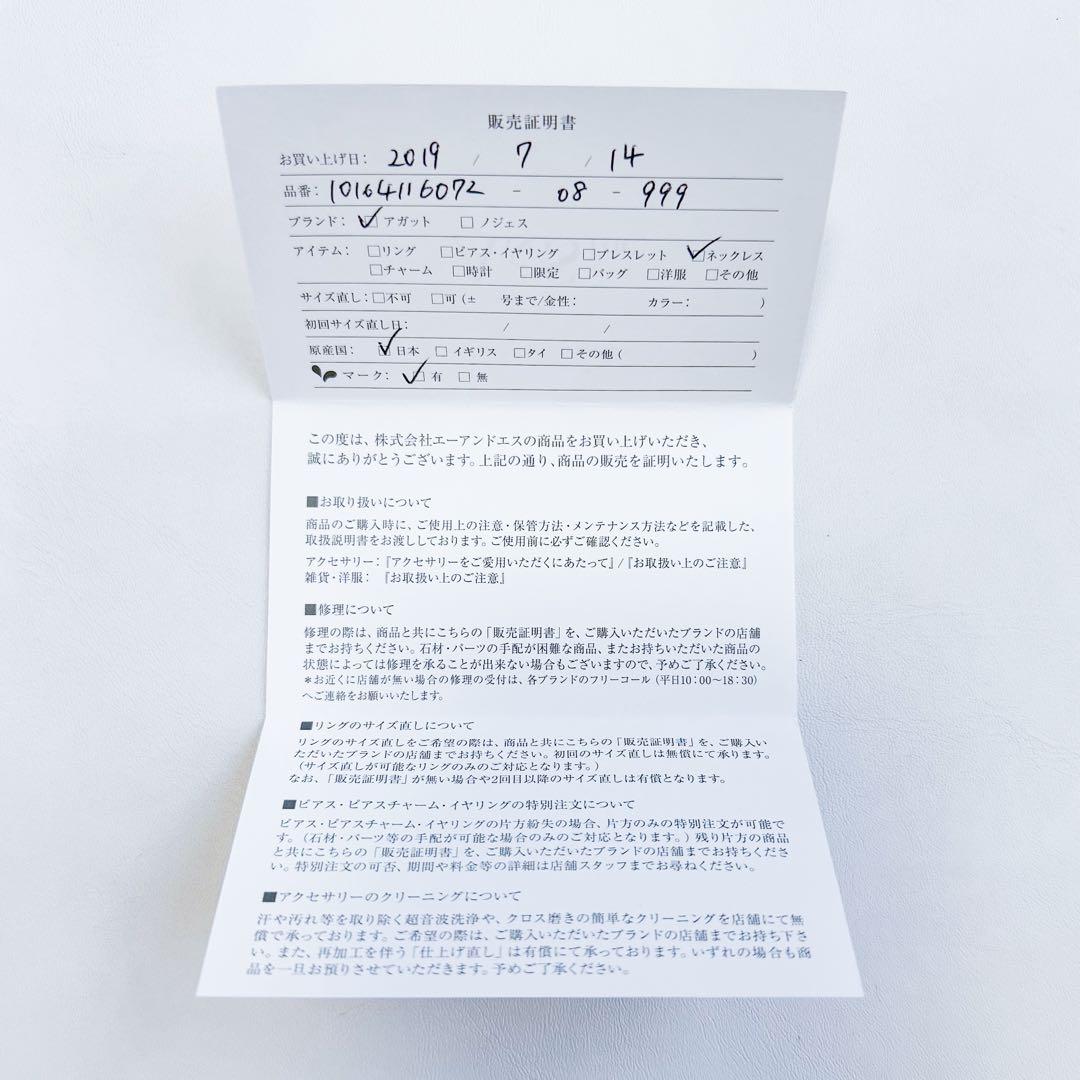 販売証明書
お買い上げ日: 2019 / 7 / 14
品番: 10164116072 - 08 - 999
ブランド: ☑アガット □ノジェス
アイテム: □リング □ピアス・イヤリング □ブレスレット ☑ネックレス
□チャーム □時計 □限定 □バッグ □洋服 □その他
サイズ直し: □不可 □可 (± 号まで/金性: カラー: )
初回サイズ直し日: / /
原産国: ☑日本 □イギリス □タイ □その他 ( )
マーク: ☑有 □無
この度は、株式会社エーアンドエスの商品をお買い上げいただき、
誠にありがとうございます。上記の通り、商品の販売を証明いたします。
■お取り扱いについて
商品のご購入時に、ご使用上の注意・保管方法・メンテナンス方法などを記載した、
取扱説明書をお渡ししております。ご使用前に必ずご確認ください。
アクセサリー:『アクセサリーをご愛用いただくにあたって』/『お取扱い上のご注意』
雑貨・洋服: 『お取扱い上のご注意』
■修理について
修理の際は、商品と共にこちらの「販売証明書」を、ご購入いただいたブランドの店舗
までお持ちください。石材・パーツの手配が困難な商品、またお持ちいただいた商品の
状態によっては修理を承ることが出来ない場合もございますので、予めご了承ください。
*お近くに店舗が無い場合の修理の受付は、各ブランドのフリーコール (平日10:00〜18:30)
へご連絡をお願いいたします。
■リングのサイズ直しについて
リングのサイズ直しをご希望の際は、商品と共にこちらの「販売証明書」を、ご購入い
ただいたブランドの店舗までお持ちください。初回のサイズ直しは無償にて承ります。
(サイズ直しが可能なリングのみのご対応となります。)
なお、「販売証明書」が無い場合や2回目以降のサイズ直しは有償となります。
■ピアス・ピアスチャーム・イヤリングの特別注文について
ピアス・ピアスチャーム・イヤリングの片方紛失の場合、片方のみの特別注文が可能で
す。(石材・パーツ等の手配が可能な場合のみのご対応となります。) 残り片方の商品
と共にこちらの「販売証明書」を、ご購入いただいたブランドの店舗までお持ちくださ
い。特別注文の可否、期間や料金等の詳細は店舗スタッフまでお尋ねください。
■アクセサリーのクリーニングについて
汗や汚れ等を取り除く超音波洗浄や、クロス磨きの簡単なクリーニングを店舗にて無
償で承っております。ご希望の際は、ご購入いただいたブランドの店舗までお持ち下さ
い。また、再加工を伴う「仕上げ直し」は有償にて承っております。いずれの場合も商
品を一旦お預りさせていただきます。予めご了承ください。